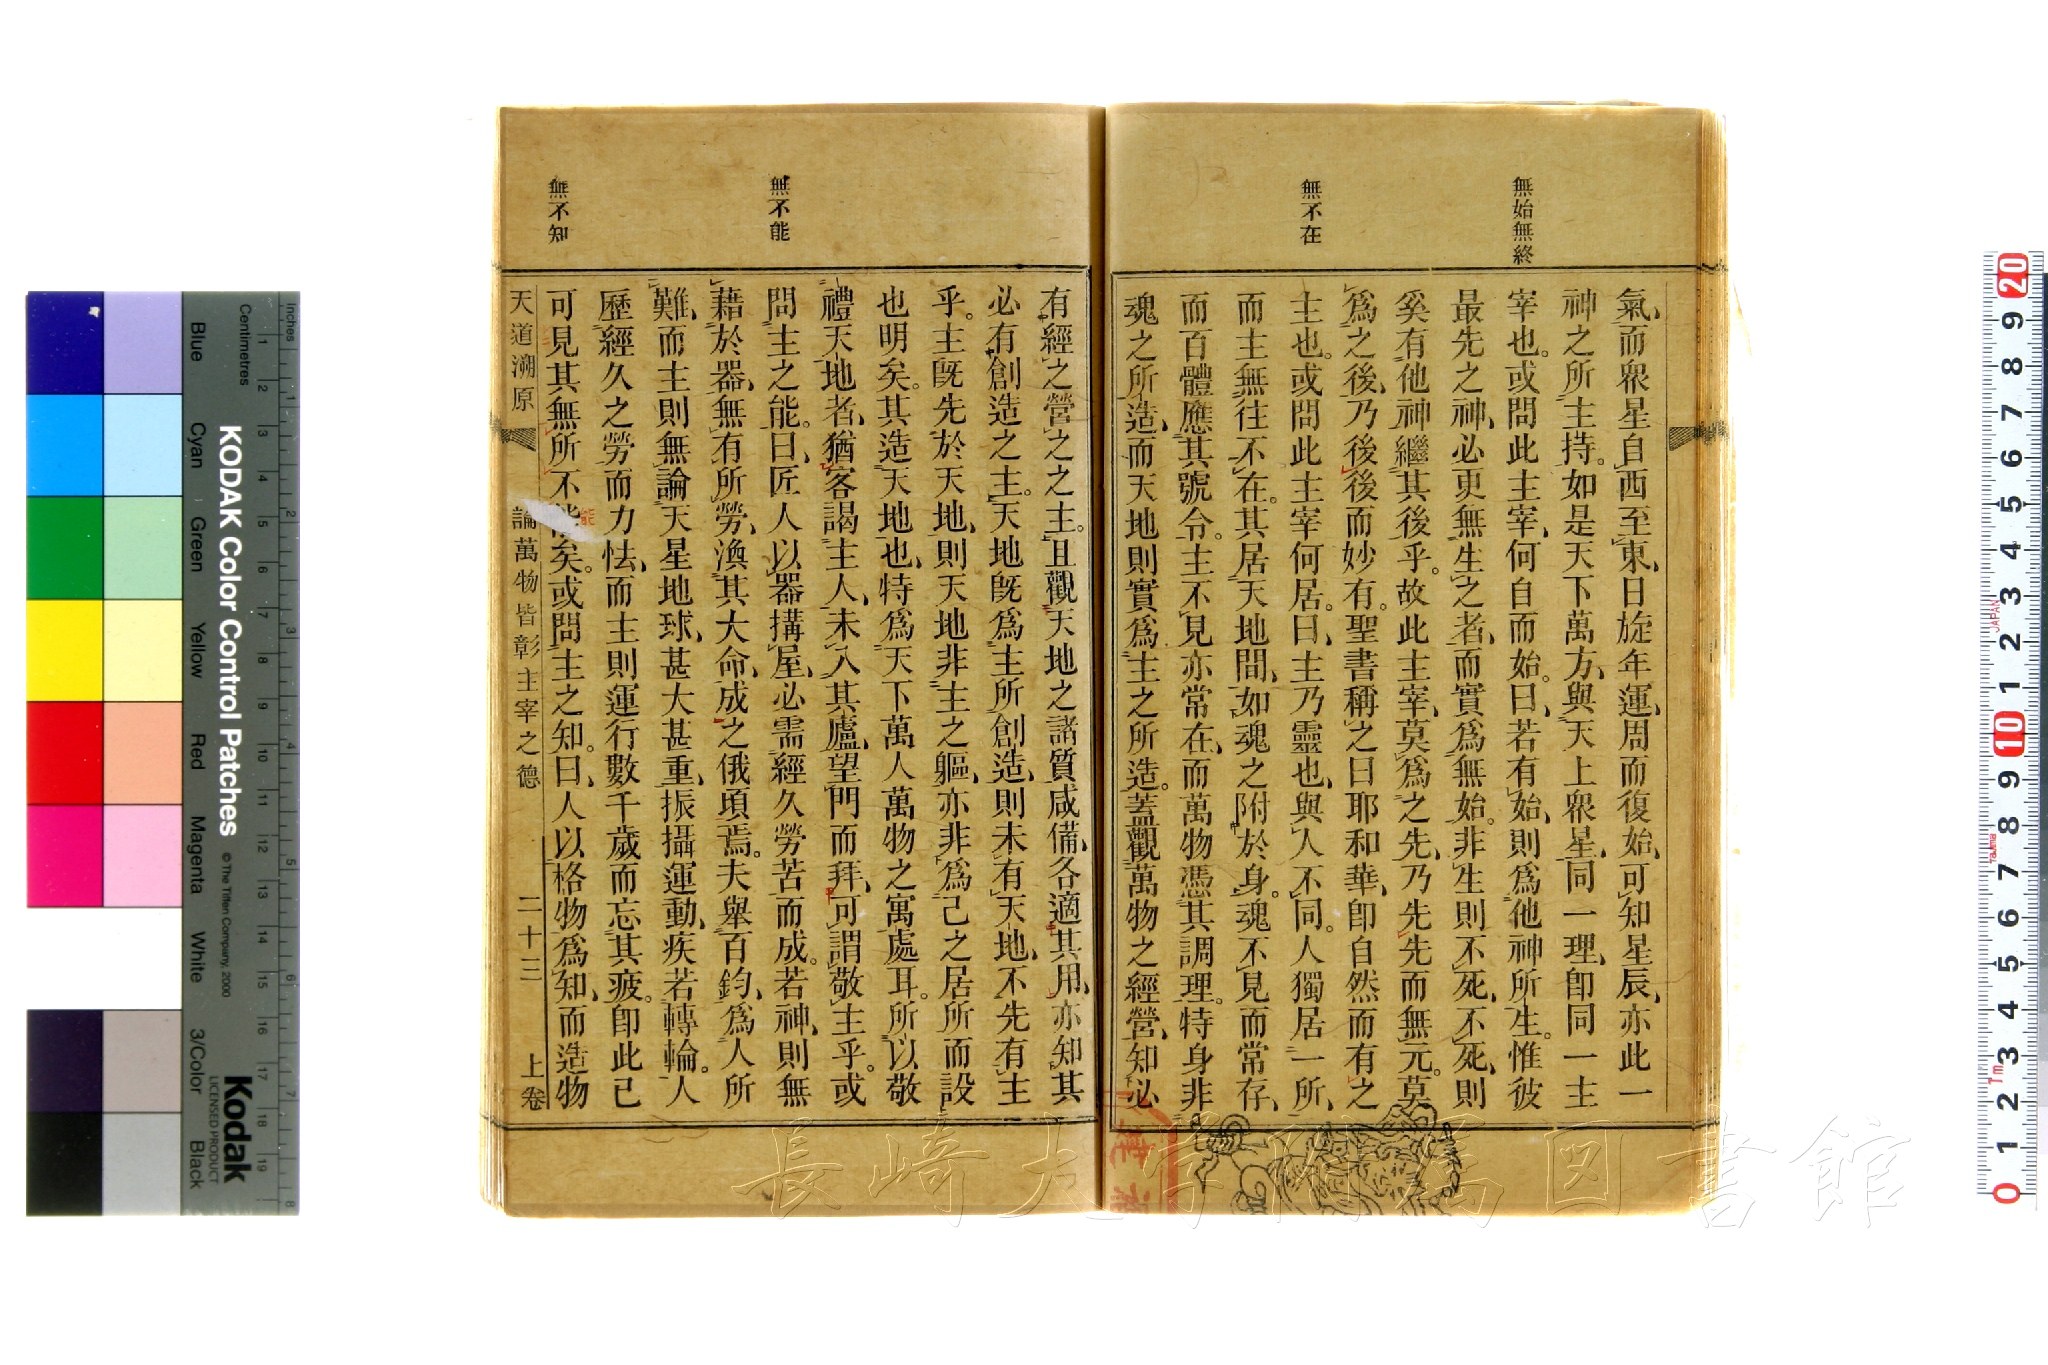 無始無終
無不在
氣、而衆星自西至東、日旋年運、周而復始、可知星辰、亦此一
神之所主持。如是天下萬方、與天上衆星、同一理、卽同一主
宰也。或問此主宰、何自而始。曰、若有始、則爲他神所生。惟彼
最先之神、必更無生之者、而實爲無始。非生則不死、不死、則
奚有他神繼其後乎。故此主宰、莫爲之先、乃先先而無元。莫
爲之後、乃後後而妙有。聖書稱之曰耶和華、卽自然而有之
主也。或問此主宰何居。曰、主乃靈也、與人不同。人獨居一所、
而主無往不在。其居天地間、如魂之附於身。魂不見而常存、
而百體應其號令。主不見亦常在、而萬物憑其調理。特身非
魂之所造、而天地則實爲主之所造。蓋觀萬物之經營、知必
無不能
無不知
有經之營之之主。且觀天地之諸質咸備、各適其用、亦知其
必有創造之主。天地旣爲主所創造、則未有天地、不先有主
乎。主旣先於天地、則天地非主之軀、亦非爲己之居所而設
也明矣。其造天地也、特爲天下萬人萬物之寓處耳。所以敬
禮天地者、猶客謁主人、未入其廬、望門而拜、可謂敬主乎。或
問主之能。曰、匠人以器搆屋、必需經久勞苦而成。若神、則無
藉於器、無有所勞、渙其大命、成之俄頃焉。夫舉百鈞、爲人所
難、而主則無論天星地球、甚大甚重、振攝運動、疾若轉輪。人
歷經久之勞而力怯、而主則運行數千歲而忘其疲。卽此已
可見其無所不能矣。或問主之知。曰、人以格物爲知、而造物
能
天道溯原
論萬物皆彰主宰之德
二十三
上卷
長崎大学附属図書館
KODAK Color Control Patches
© The Tiffen Company, 2000
Kodak
LICENSED PRODUCT
Inches
Centimetres
Blue
Cyan
Green
Yellow
Red
Magenta
White
3/Color
Black
JAPAN
Tajima